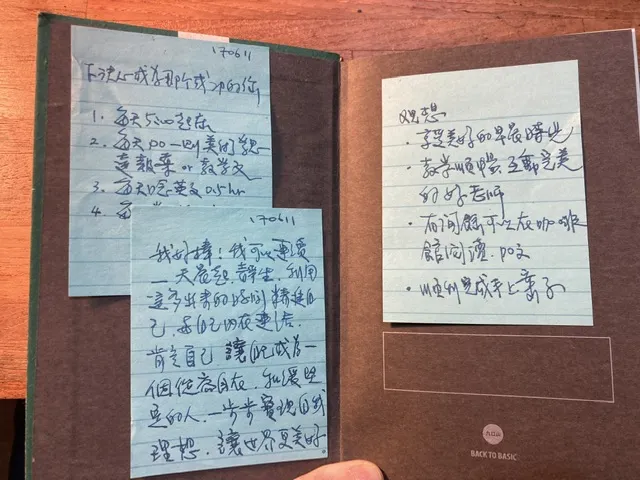 170611
下決心成為那個成功的你
1. 每天5:00起床
2. 每天PO一則美的學思
達報菜 or 教學文
3. 每天唸英文0.5hr
4. 每
170611
我好棒!我可以連續
一天晨起、靜坐、利用
這多出來的時間精進自
己、與自己內在連結、
肯定自己 讓自己成為一
個從容自在、和溫堅
定的人、一步步實現自我
理想、讓世界更美好
理想
・享受美好的早晨時光
・教學順暢、互動完美
的好老師
・有閒暇可以在咖啡
館閱讀、PO文
・順利完成手上案子
raw
BACK TO BASIC